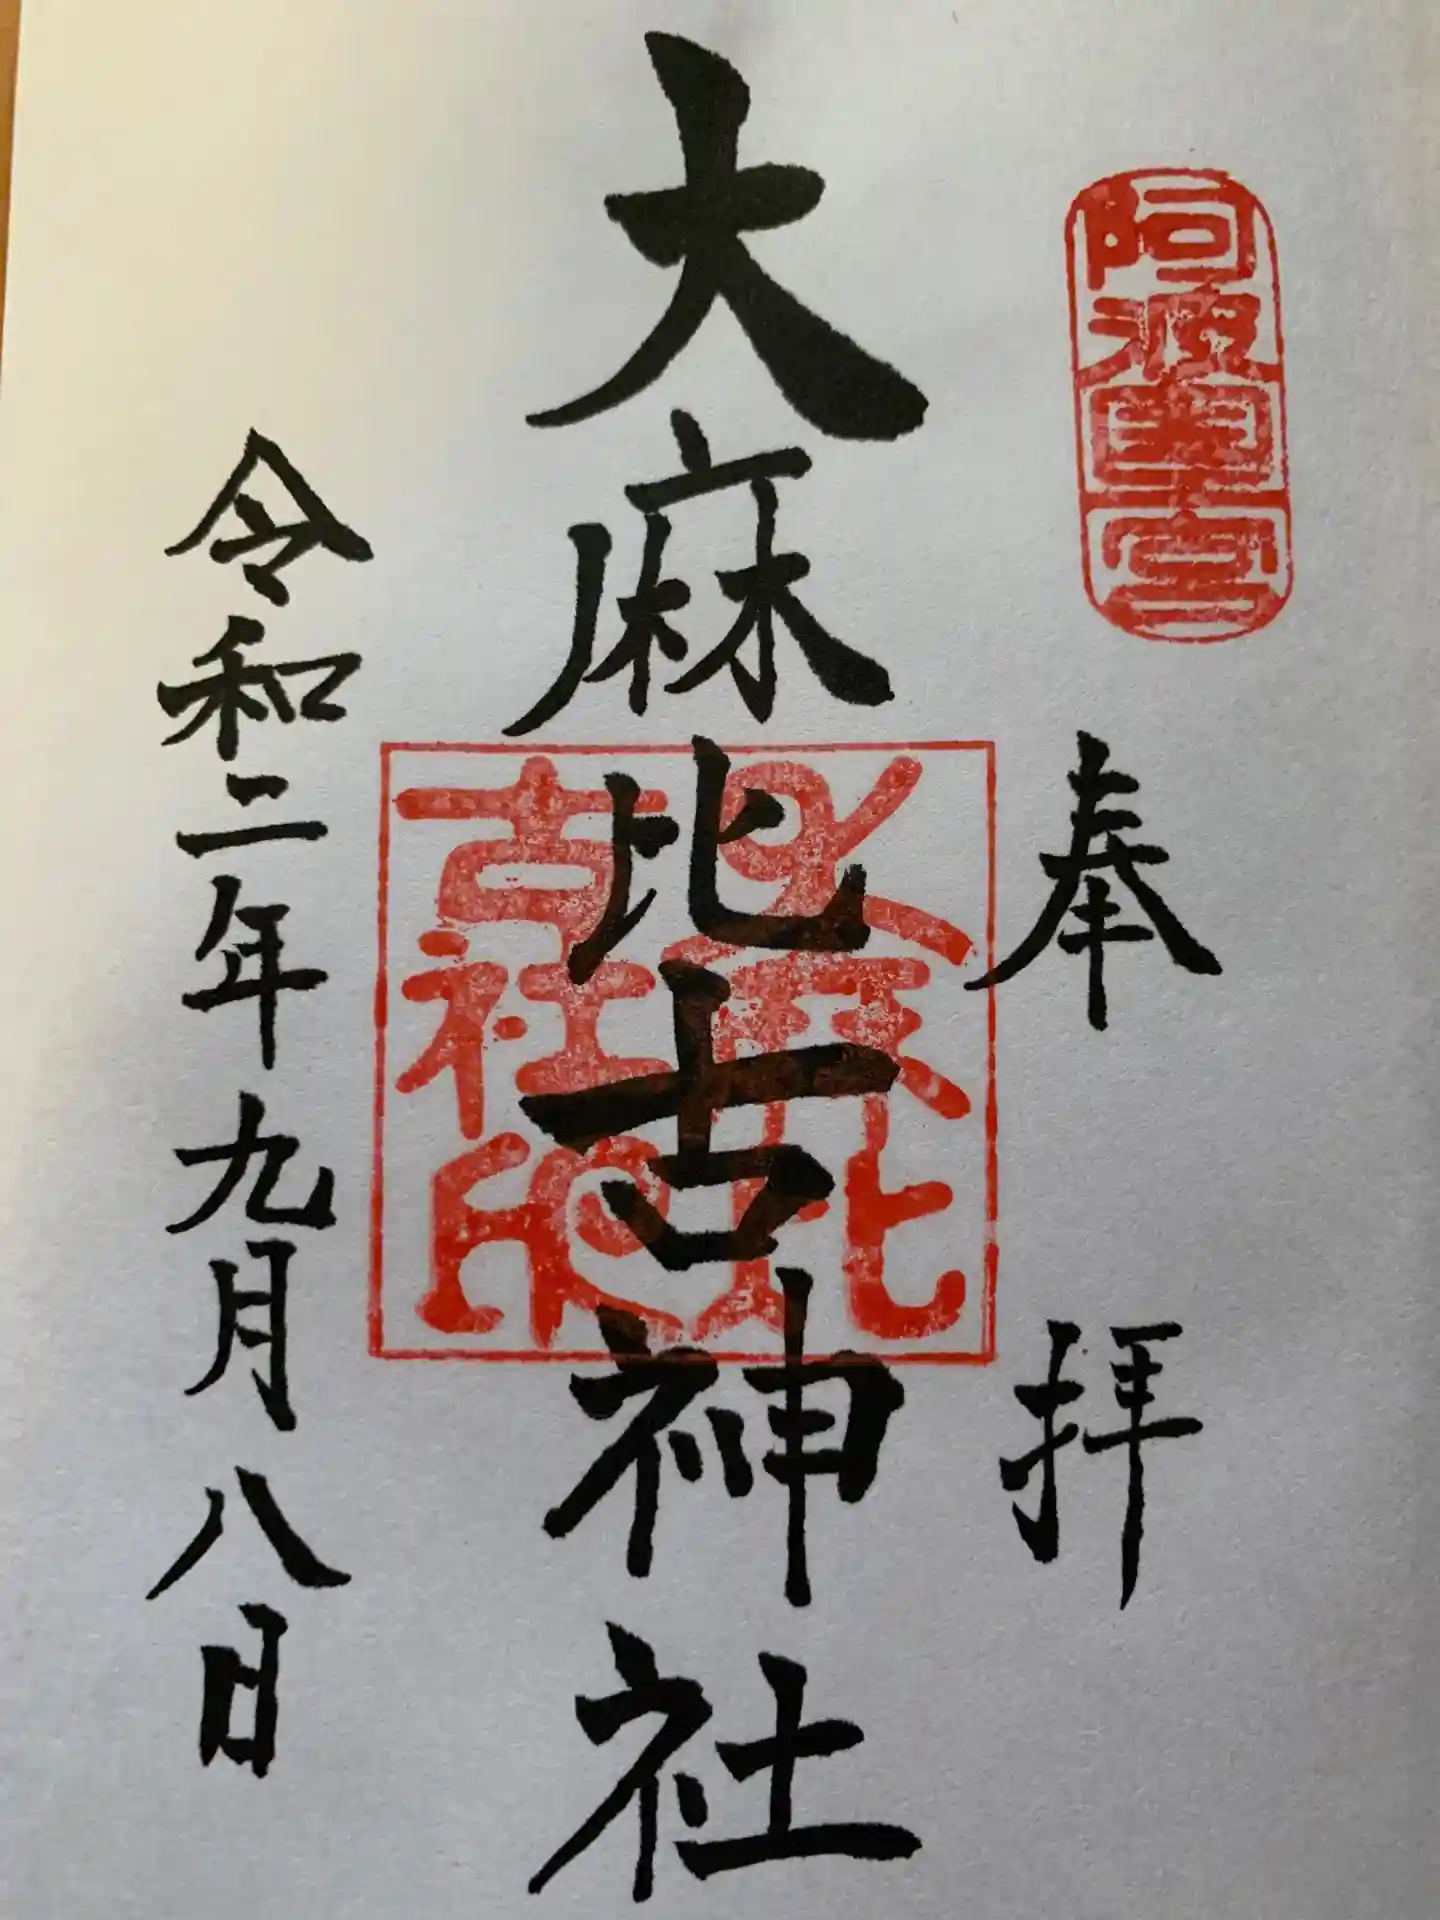 阿波一宮
奉拝
大麻比古神社
大麻比
古社印
令和二年九月八日